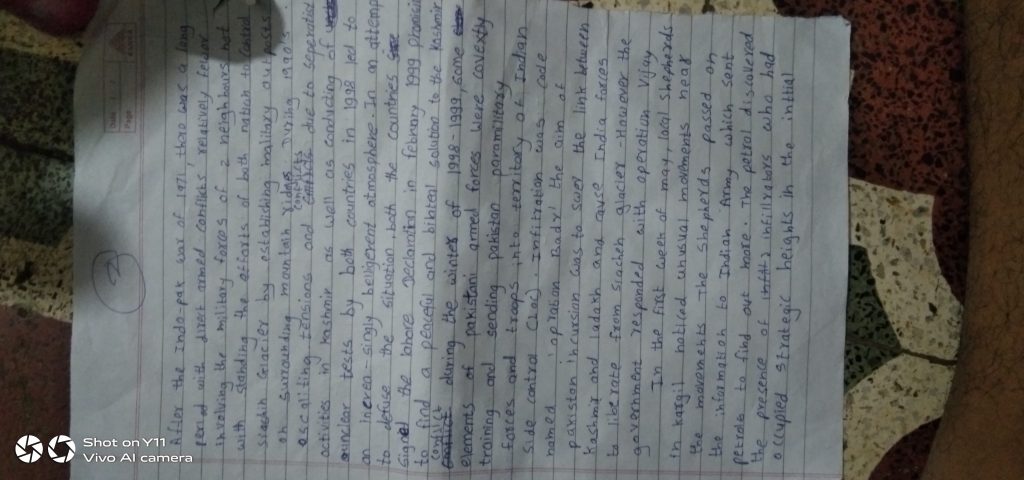 Date
Page
2
After the Indo-pak war of 1971, thae was a long
period with direct armed conflicts relatively fewer
involving the military forces of 2 neighbours had
with standing the efforts of both nation to control
Glacier by establishing military outposts
on surrounding mountain ridges During 1990's.
tensions and conflicts due to seperated
activities in kashmir as well as conducting of
nuclear tests by both countries in 1998 led to
an increa-singly beligenent atmosphere. In an attempt
to defuse the situation, both the countries
signed the lahore Declaration in febrary 1999 promising
to find a peaceful and bilateral solution to the kashmir
conflict during the winter of 1998-1999, some
elements of pakistani armed forces were covertly
training and sending pakistan paramilitary
forces and troops into territory of Indian
side control (LOC). Infiltration was code
named 'opration Badr' the aim of
pakistan incursion was to sewer the link between
kachmir and ladakh and cause India forces
to liberate from siachen glacier. However the
government responded with operation Vijay
In the first week of may, local shepherds
in kargil notised unusual movements near
the movements The shepherds passed on
the information to Indian Army which sent
petrols to find out more. The patrol discovered
the presence of infiltrators who had
occupied strategic heights in the initial
Shot on Y11
Vivo AI camera